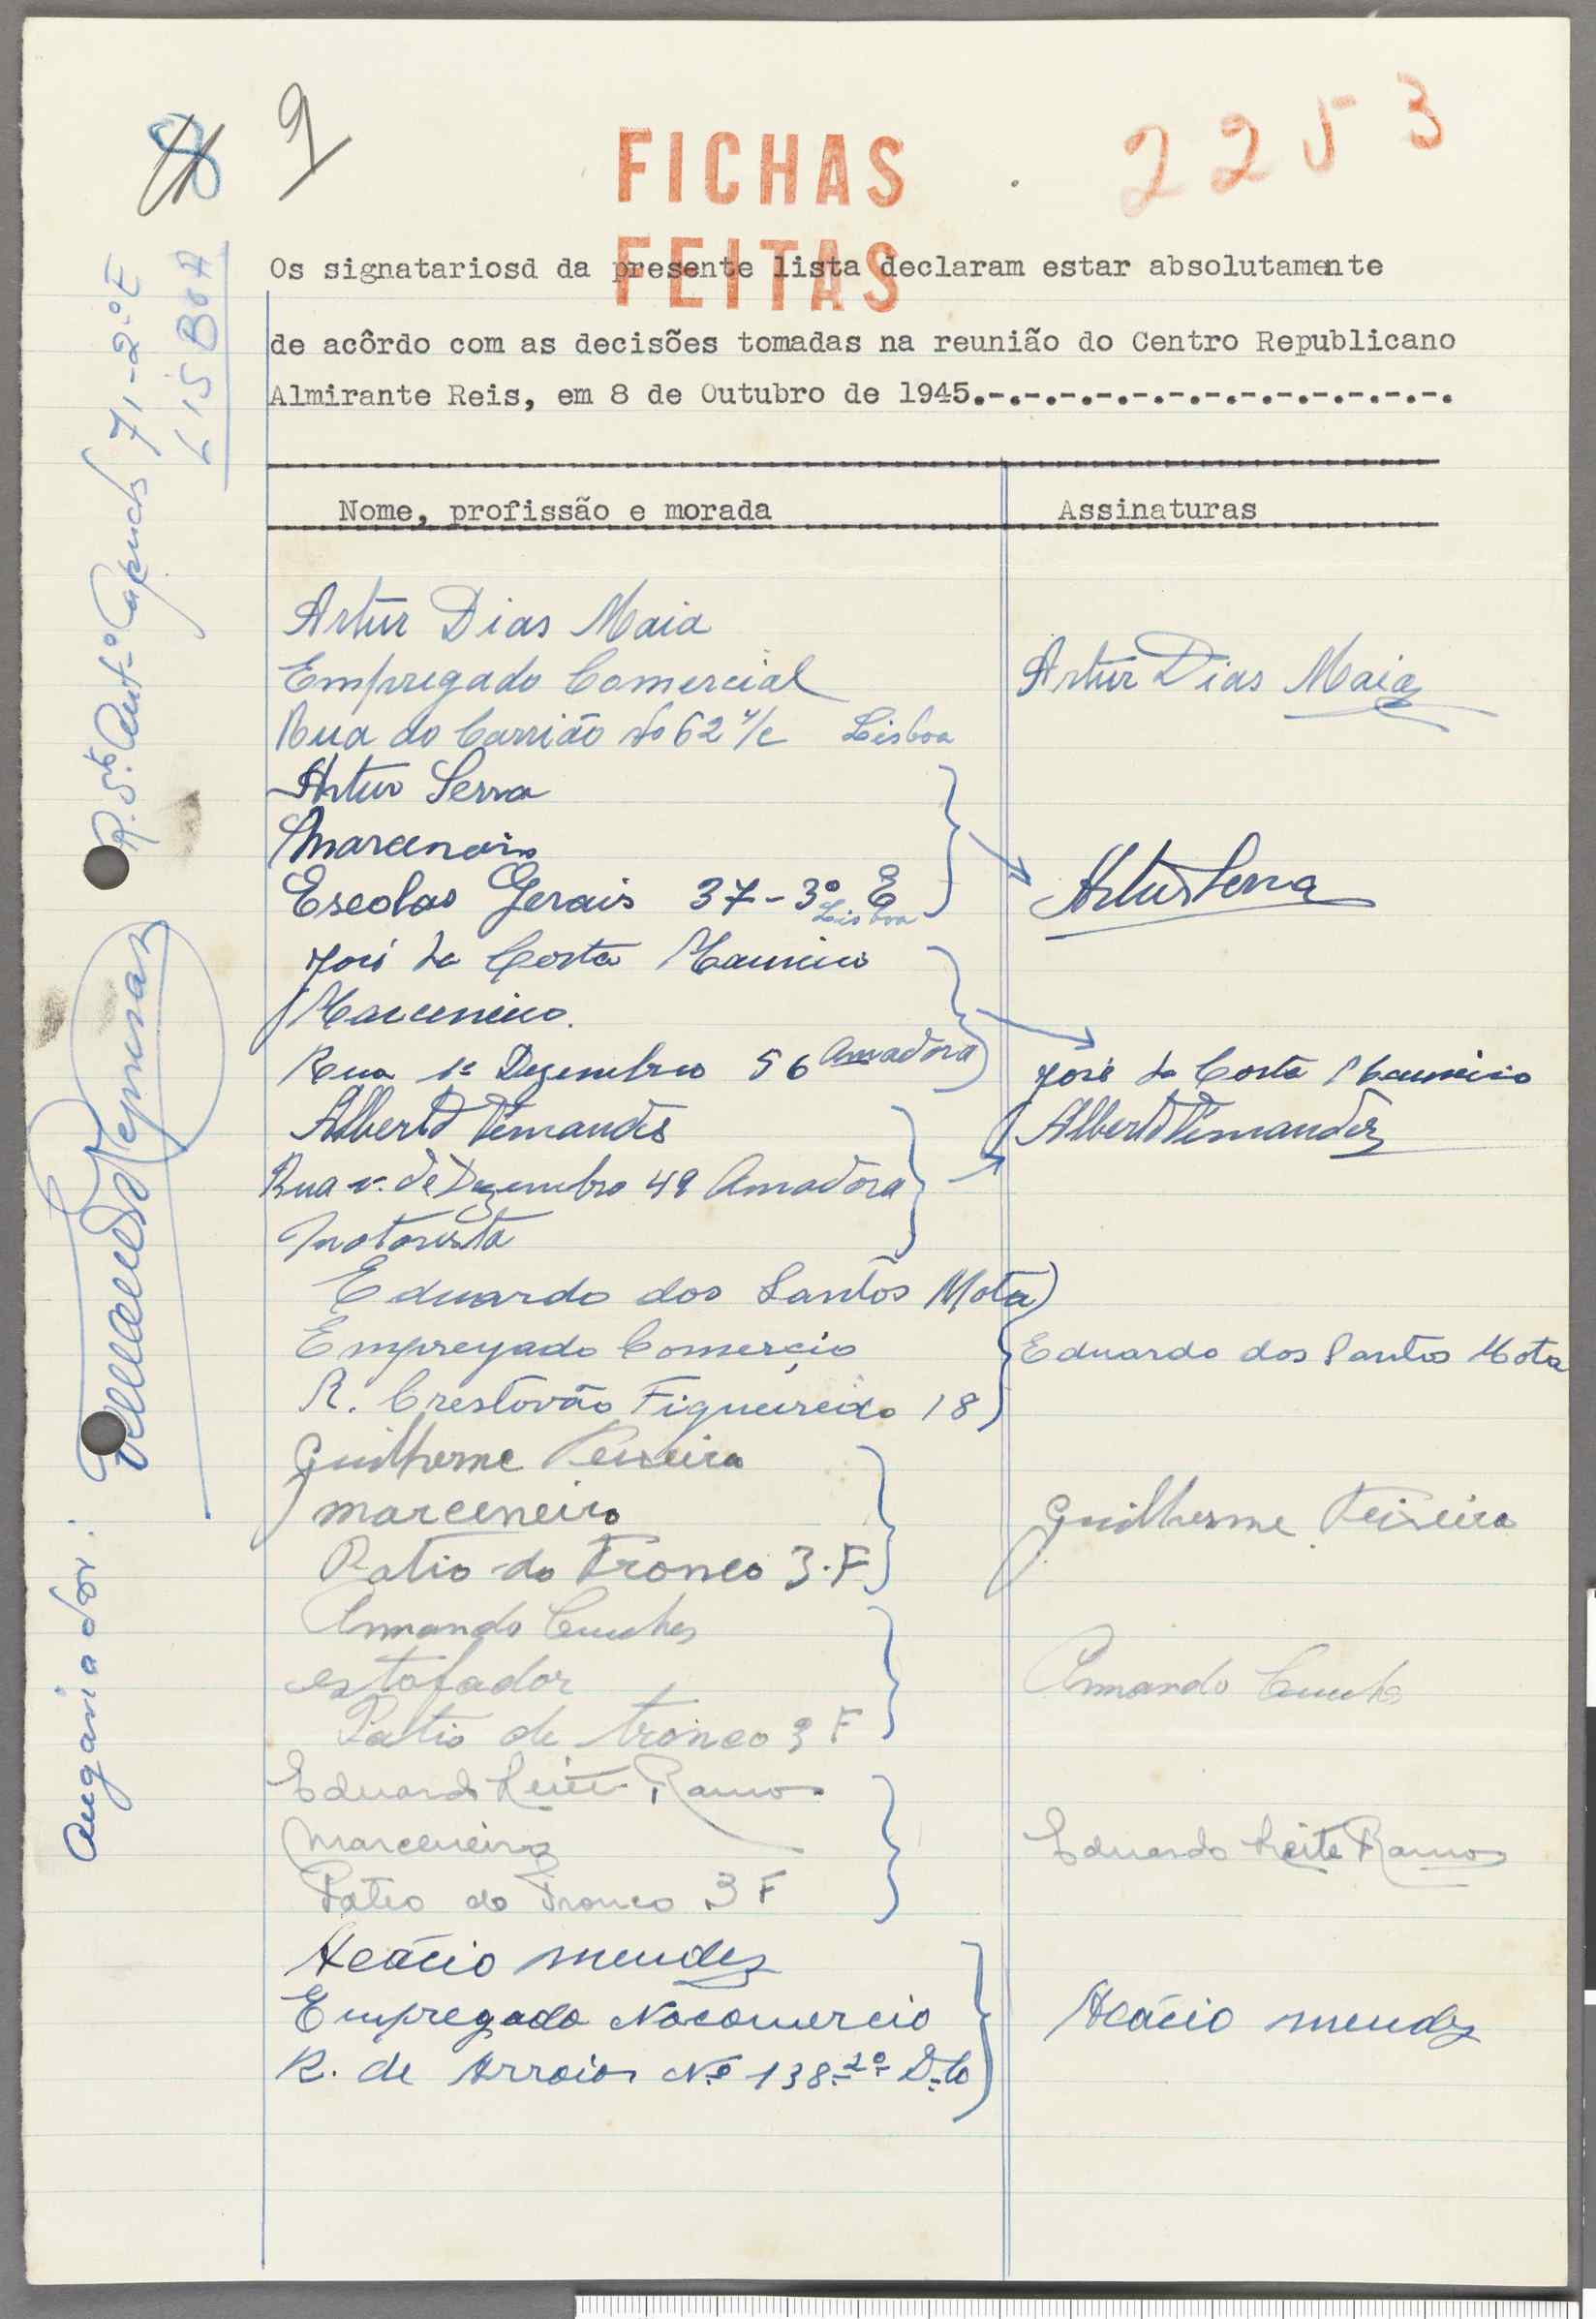 9
2253
FICHAS
FEITAS
Os signatariosd da presente lista declaram estar absolutamente
de acôrdo com as decisões tomadas na reunião do Centro Republicano
Almirante Reis, em 8 de Outubro de 1945.-.-.-.-.-.-.-.-.-.-.-.-.-.
Nome, profissão e morada
Assinaturas
Artur Dias Maia
Empregado Comercial
Artur Dias Maia
Rua do Carrião No 62 r/c Lisboa
Artur Serra
Marceneiro
Escolas Gerais 37-3º E
Lisboa
Artur Serra
José da Costa Mauricio
Marceneiro.
Rua 1º Dezembro 56 Amadora
José da Costa Mauricio
Alberto Fernandes
Alberto Fernandes
Rua 1º de Dezembro 49 Amadora
Motorista
Eduardo dos Santos Mota
Empregado Comercio
Eduardo dos Santos Mota
R. Crestovão Figueiredo 18
Guilherme Teixeira
marceneiro
Guilherme Teixeira
Patio do Tronco 3.F
Armando Cunha
estofador
Armando Cunha
Patio do Tronco 3 F
Eduardo Leite Ramos
Marceneiro
Eduardo Leite Ramos
Pateo do Tronco 3 F
Acácio Mendes
Empregado No comercio
Acácio Mendes
R. de Arroios Nº 138-2º D.to
Angariador:
R. Stº Antº Capuchos 71-2.º E
LISBOA